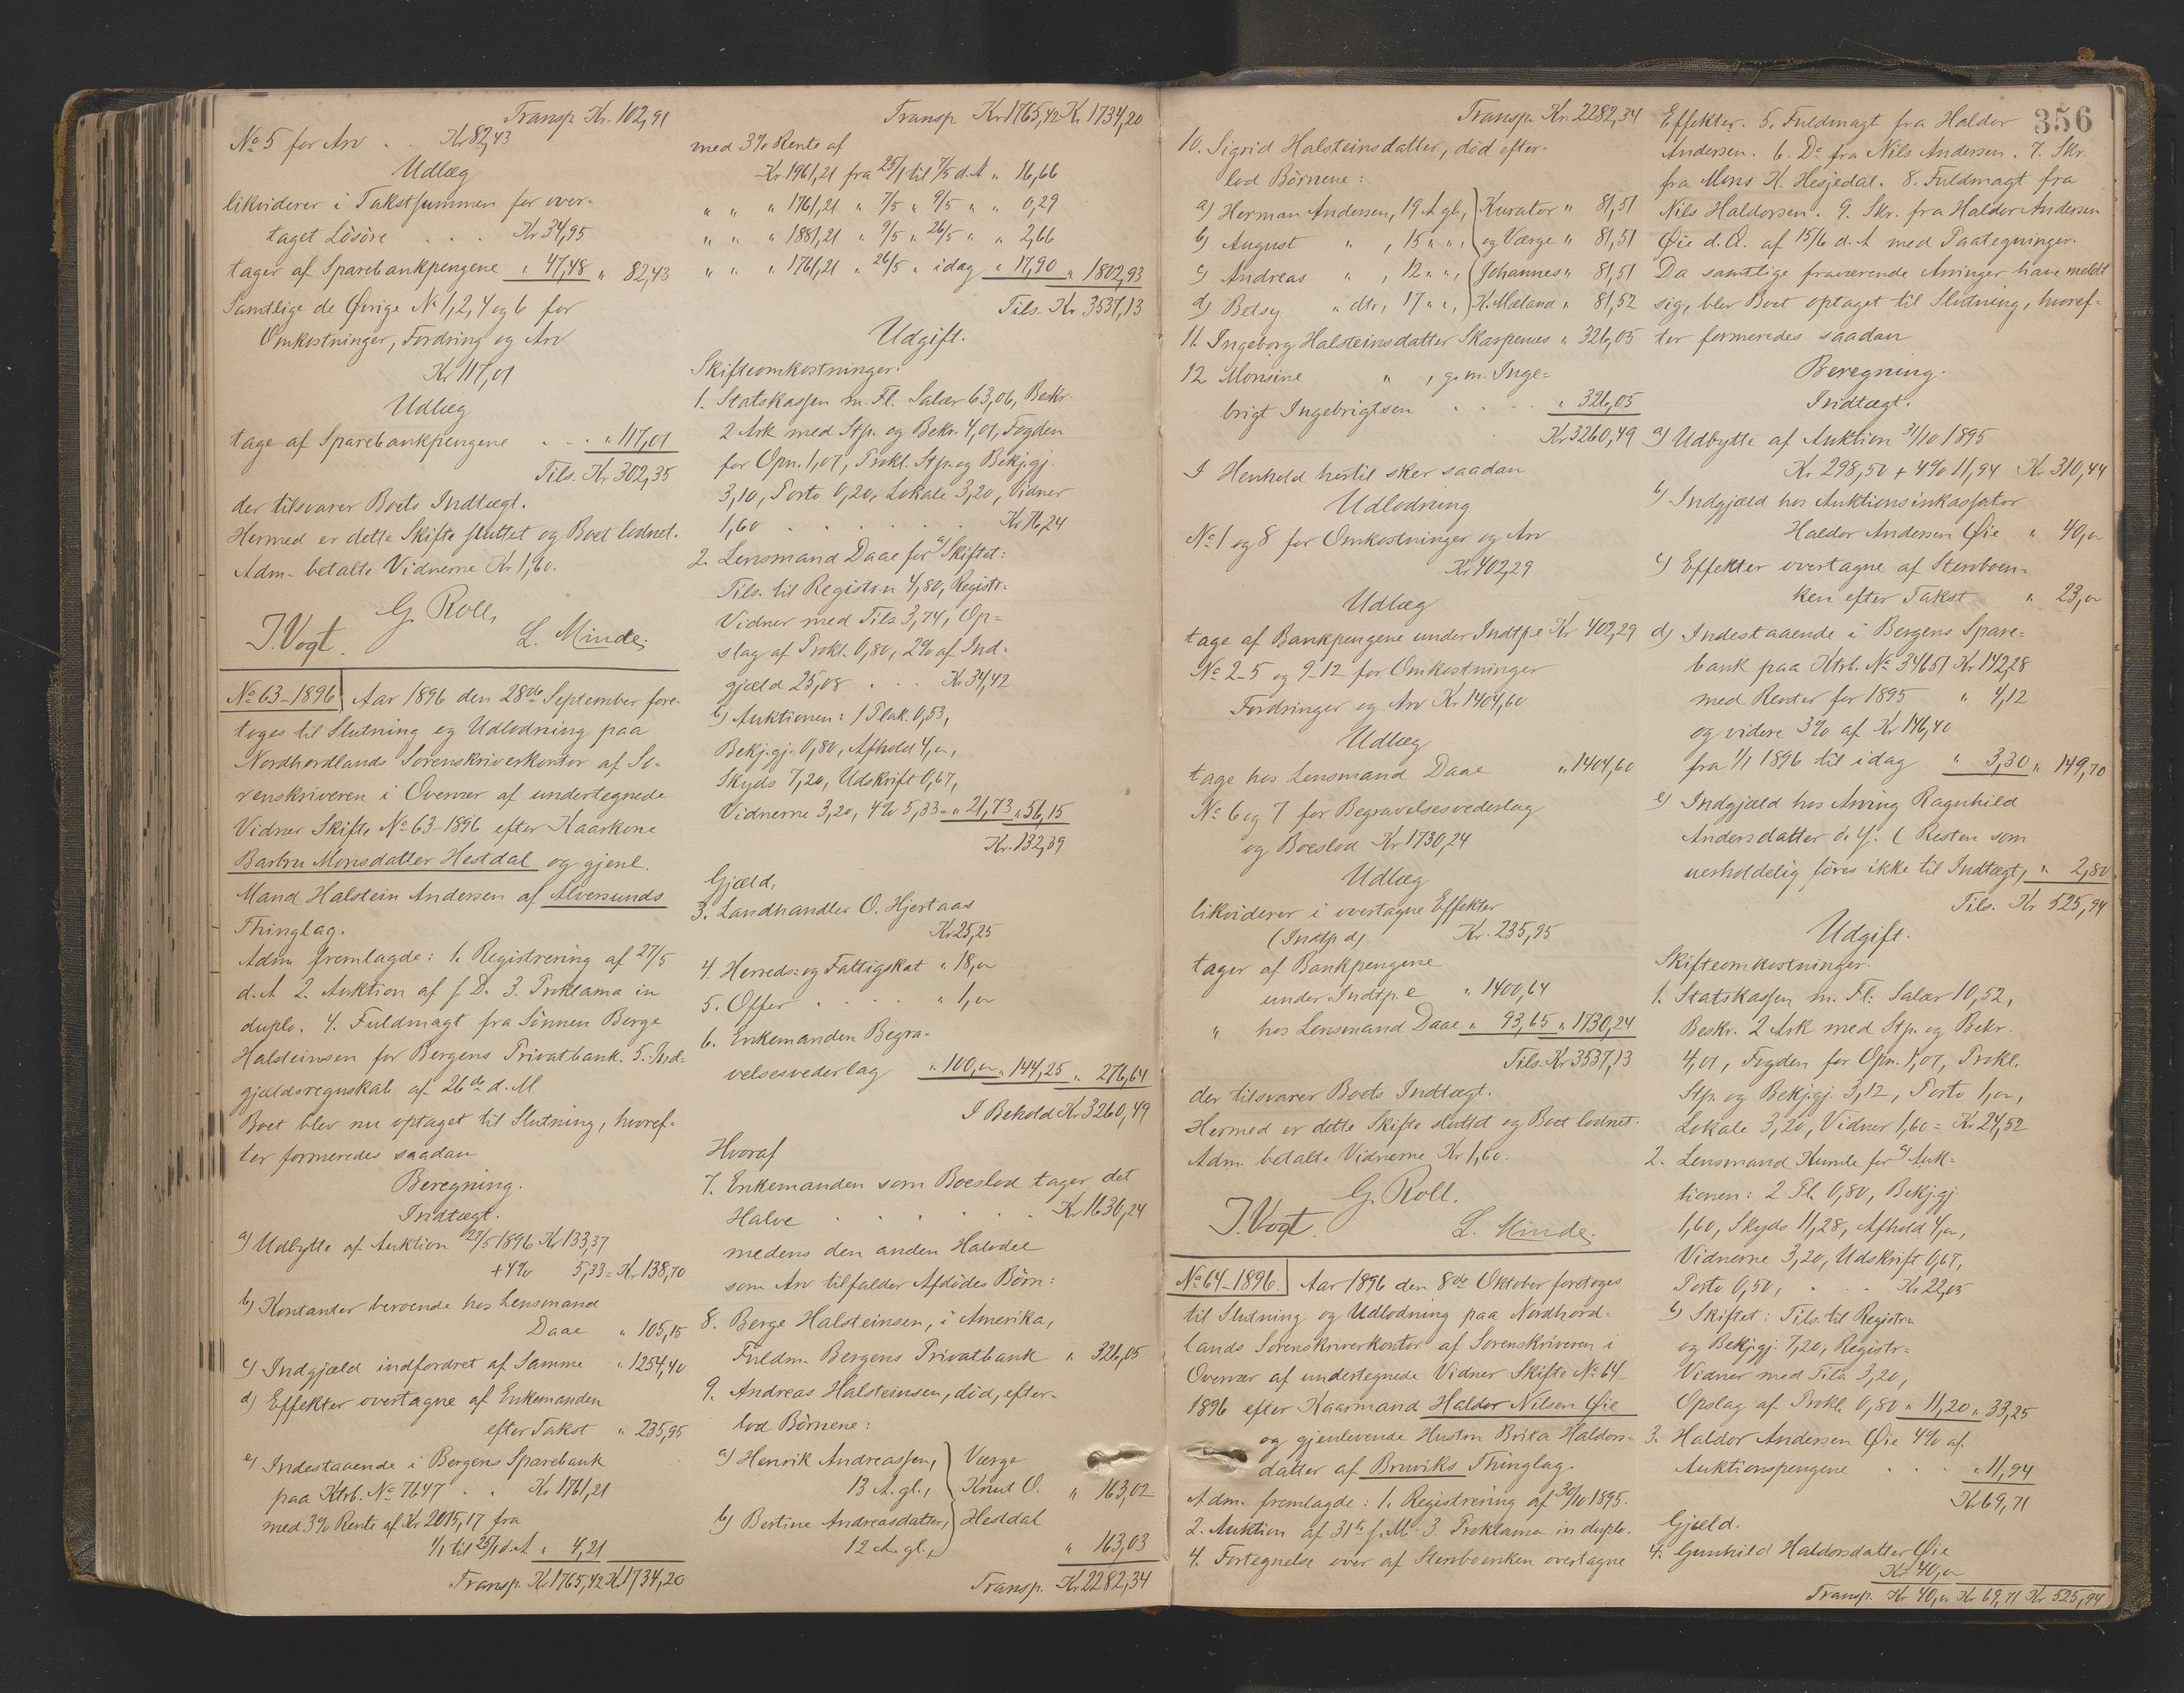 Transp Kr. 102,91
No 5 for Arv . . Kr 82,43
Udlæg
likviderer i Takstsummen for over-
taget Lösöre . . . Kr 34,95
tager af Sparebankpengene " 47,48 " 82,43
Samtlige de Øvrige No 1, 2, 4 og 6 for
Omkostninger, Fordring og Arv
Kr 117,01
Udlæg
tage af Sparebankpengene . - . " 117,01
Tils. Kr 302,35
der tilsvarer Boets Indtægt.
Hermed er dette Skifte sluttet og Boet lodnet.
Adm. betalte Vidnerne Kr 1,60.
G. Roll,
J. Vogt. L. Minde,
No 63-1896 Aar 1896 den 28de September fore-
toges til Slutning og Udlodning paa
Nordhordlands Sorenskriverkontor af So-
renskriveren i Overvær af undertegnede
Vidner Skifte No 63-1896 efter Kaarkone
Barbru Monsdatter Hestdal og gjenl.
Mand Halstein Andersen af Alversunds
Thinglag.
Adm fremlagde: 1. Registrering af 27/5
d. A 2. Auktion af s. D. 3. Proklama in
duplo. 4. Fuldmagt fra Sönnen Berge
Halsteinsen for Bergens Privatbank. 5. Ind-
gjældsregnskab af 26de d. M
Boet blev nu optaget til Slutning, hvoref-
ter formeredes saadan
Beregning.
Indtægt.
a) Udbytte af Auktion 27/5 1896 Kr 133,37
+ 4% 5,33 = Kr 138,70
b) Kontanter beroende hos Lensmand
Daae " 105,15
c) Indgjæld indfordret af Samme " 1254,40
d) Effekter overtagne af Enkemanden
efter Takst " 235,95
e) Indestaaende i Bergens Sparebank
paa Ktrb. No 7647 . . Kr 1761,21
med 3% Rente af Kr 2015,17 fra
1/1 til 25/1 d. A " 4,21
Transp. Kr 1765,42 Kr 1734,20
Transp Kr 1765,42 Kr 1734,20
med 3% Rente af
Kr 1961,21 fra 25/1 til 7/5 d. A " 16,66
" " " 1761,21 " 7/5 " 9/5 " " 0,29
" " " 1881,21 " 9/5 " 26/5 " " 2,66
" " " 1761,21 " 26/5 " idag " 17,90 " 1802,93
Tils. Kr 3537,13
Udgift.
Skifteomkostninger.
1. Statskassen m. Fl. Salær 63,06, Beskr.
2 Ark med Stp. og Bekr. 4,01, Fogden
for Opn. 1,07, Prokl. Stp. og Bekjgj.
3,10, Porto 0,20, Lokale 3,20, Vidner
1,60 . . . . . . Kr 76,24
2. Lensmand Daae for a) Skiftet:
Tils. til Registr.n 4,80, Registr-
Vidner med Tils. 3,74, Op-
slag af Prokl. 0,80, 2% af Ind-
gjæld 25,08 . . . Kr 34,42
b) Auktionen: 1 Plak. 0,53,
Bekjgj. 0,80, Afhold 4,00,
Skyds 7,20, Udskrift 0,67,
Vidnerne 3,20, 4% 5,33 = " 21,73 " 56,15
Kr. 132,39
Gjæld,
3. Landhandler O. Hjertaas
Kr 25,25
4. Herreds: og Fattigskat " 18,00
5. Offer . . . . " 1,00
6. Enkemanden Begra-
velsesvederlag " 100,00 " 144,25 " 276,64
I Behold Kr 3260,49
Hvoraf
7. Enkemanden som Boeslod tager det
Halve . . . . . . . Kr 1630,24
medens den anden Halvdel
som Arv tilfalder Afdödes Börn:
8. Berge Halsteinsen, i Amerika,
Fuldm. Bergens Privatbank " 326,05
9. Andreas Halsteinsen, död, efter-
lod Börnene:
a) Henrik Andreassen, Værge
13 A. gl., Knut O. " 163,02
b) Bertine Andreasdatter, Hestdal
12 A. gl., " 163,03
Transp. Kr 2282,34
Transp. Kr. 2282,34
10. Sigrid Halsteinsdatter, död efter-
lod Börnene:
a) Herman Andersen, 19 A gl, Kurator " 81,51
b) August " , 15 " ", og Værge " 81,51
c) Andreas " , 12 " ", Johannes " 81,51
d) Betsy " dtr, 17 " ", K. Mæland " 81,52
11. Ingeborg Halsteinsdatter Skarpenes " 326,05
12. Monsine " , g. m. Inge-
brigt Ingebrigtsen . . . . " 326,05
Kr 3260,49
I Henhold hertil sker saadan
Udlodning
No 1 og 8 for Omkostninger og Arv
Kr 402,29
Udlæg
tage af Bankpengene under Indtp. e Kr 402,29
No 2-5 og 9-12 for Omkostninger
Fordringer og Arv Kr 1404,60
Udlæg
tage hos Lensmand Daae " 1404,60
No 6 og 7 for Begravelsesvederlag
og Boeslod Kr 1730,24
Udlæg
likviderer i overtagne Effekter
(Indtp d) Kr. 235,95
tager af Bankpengene
under Indtp. e " 1400,64
" hos Lensmand Daae " 93,65 " 1730,24
Tils. Kr 3537,13
der tilsvarer Boets Indtægt.
Hermed er dette Skifte sluttet og Boet lodnet.
Adm. betalte Vidnerne Kr 1,60.
G. Roll.
J. Vogt. L. Minde,
No 64-1896. Aar 1896 den 8de Oktober foretoges
til Slutning og Udlodning paa Nordhord-
lands Sorenskriverkontor af Sorenskriveren i
Overvær af undertegnede Vidner Skifte No 64-
1896 efter Kaarmand Haldor Nilsen Øie
og gjenlevende Hustru Brita Haldors-
datter af Bruviks Thinglag.
Adm. fremlagde: 1. Registrering af 30/10 1895.
2. Auktion af 31te s. M. 3. Proklama in duplo.
4. Fortegnelse over af Stervboenken overtagne
356
Effekter. 5. Fuldmagt fra Haldor
Andersen. 6. Do fra Nils Andersen. 7. Skr.
fra Mons K. Hesjedal. 8. Fuldmagt fra
Nils Haldorsen. 9. Skr. fra Haldor Andersen
Øie d. Æ. af 15/6 d. A med Paategninger.
Da samtlige fraværende Arvinger have meldt
sig, blev Boet optaget til Slutning, hvoref-
ter formeredes saadan
Beregning.
Indtægt.
a) Udbytte af Auktion 31/10 1895
Kr 298,50 + 4% 11,94 Kr 310,44
b) Indgjæld hos Auktionsinkassator
Haldor Andersen Øie " 40,00
c) Effekter overtagne af Stervboen-
ken efter Takst " 23,00
d) Indestaaende i Bergens Spare-
bank paa Ktrb. No 34651 Kr 142,28
med Renter for 1895 " 4,12
og videre 3% af Kr 146,40
fra 1/1 1896 til idag " 3,30 " 149,70
e) Indgjæld hos Arving Ragnhild
Andersdatter d. y. (Resten som
uerholdelig föres ikke til Indtægt) " 2,80
Tils. Kr 525,94
Udgift.
Skifteomkostninger.
1. Statskassen m. Fl: Salær 10,52,
Beskr. 2 Ark med Stp. og Bekr.
4,01, Fogden for Opn. 1,07, Prokl.
Stp. og Bekjgj. 3,12, Porto 1,00,
Lokale 3,20, Vidner 1,60 = Kr 24,52
2. Lensmand Kumle for a) Auk-
tionen: 2 Pl. 0,80, Bekjgj.
1,60, Skyds 11,28, Afhold 4,00,
Vidnerne 3,20, Udskrift 0,67,
Porto 0,50, . . Kr 22,05
b) Skiftet: Tils. til Registr.n
og Bekjgj. 7,20, Registr-
Vidner med Tils. 3,20,
Opslag af Prokl. 0,80 " 11,20 " 33,25
3. Haldor Andersen Øie 4% af
Auktionspengene . . " 11,94
Kr 69,71
Gjæld.
4. Gunhild Haldorsdatter Øie
Kr 40,00
Transp. Kr 40,00 Kr 69,71 Kr 525,94